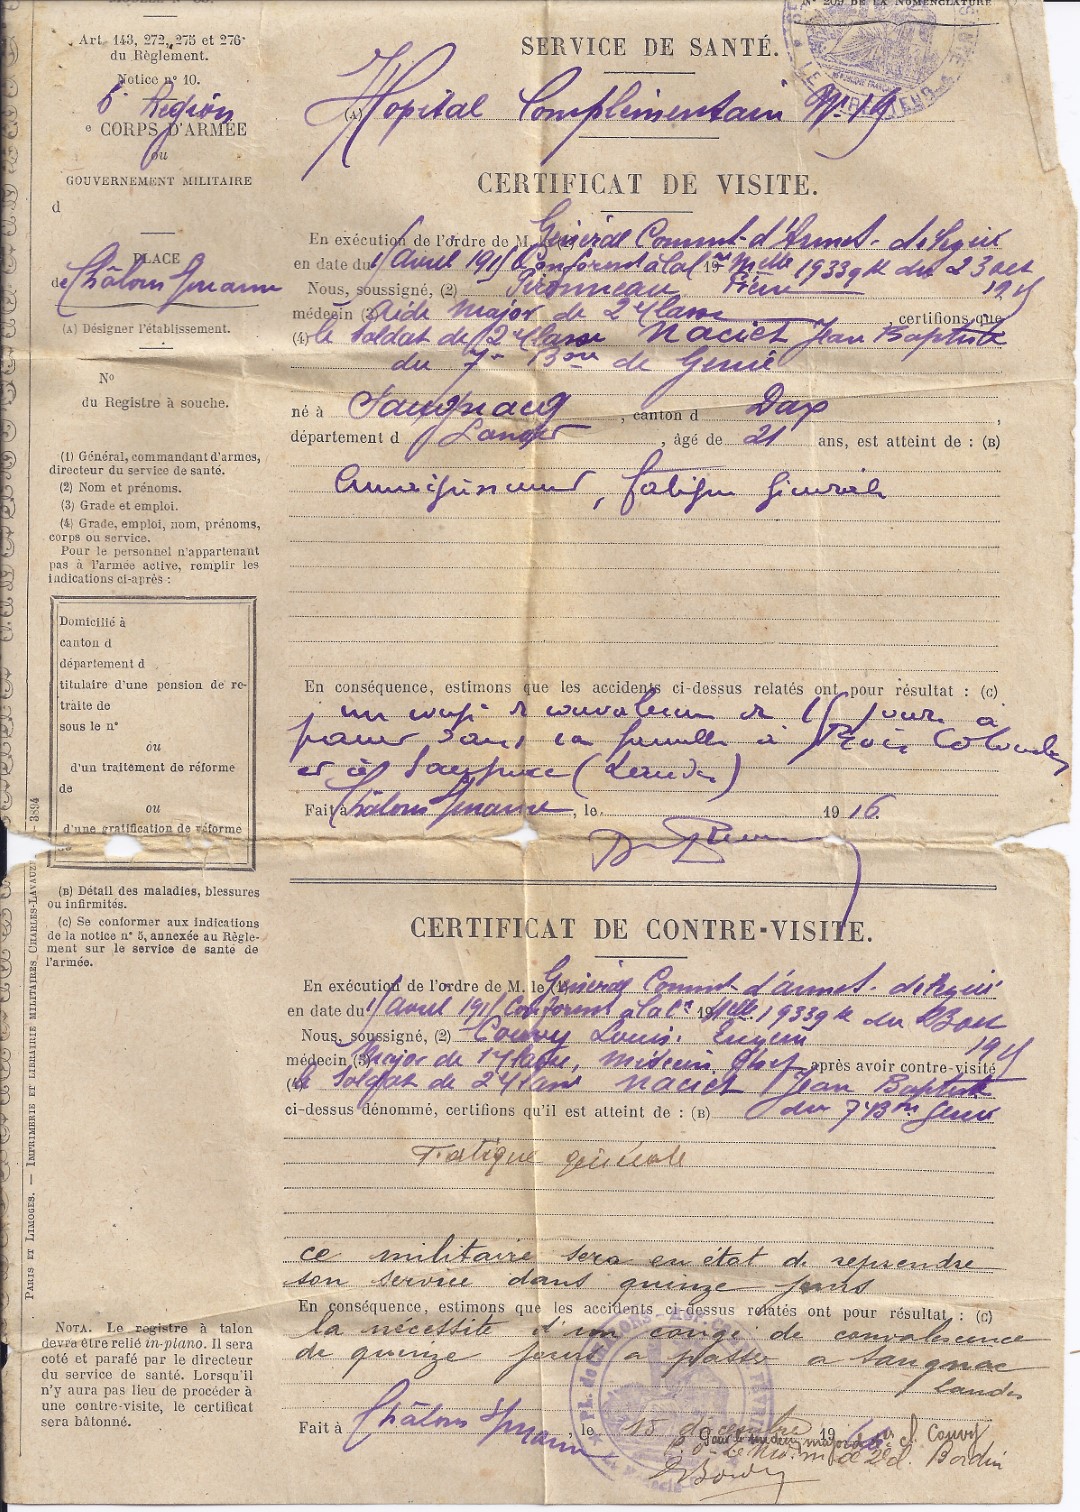 Art. 143, 272, 275 et 276
du Règlement.
Notice n° 10.
6e Région
e CORPS D'ARMÉE
ou
GOUVERNEMENT MILITAIRE
d
PLACE
de Châlons s/ marne
(A) Désigner l'établissement.
N°
du Registre à souche.
(1) Général, commandant d'armes,
directeur du service de santé.
(2) Nom et prénoms.
(3) Grade et emploi.
(4) Grade, emploi, nom, prénoms,
corps ou service.
Pour le personnel n'appartenant
pas à l'armée active, remplir les
indications ci-après :
Domicilié à
canton d
département d
titulaire d'une pension de re-
traite de
sous le n°
ou
d'un traitement de réforme
de
ou
d'une gratification de réforme
(B) Détail des maladies, blessures
ou infirmités.
(C) Se conformer aux indications
de la notice n° 5, annexée au Règle-
ment sur le service de santé de
l'armée.
NOTA. Le registre à talon
devra être relié in-plano. Il sera
coté et parafé par le directeur
du service de santé. Lorsqu'il
n'y aura pas lieu de procéder à
une contre-visite, le certificat
sera bâtonné.
PARIS ET LIMOGES. — IMPRIMERIE ET LIBRAIRIE MILITAIRES CHARLES-LAVAUZELLE — 3894
N° 209 DE LA NOMENCLATURE
SERVICE DE SANTÉ.
(A) Hopital Complémentair N° 19
CERTIFICAT DE VISITE.
En exécution de l'ordre de M. le (1) Général Commt d'Armes
en date du 15 avril 1915 Conforent à la Ctre 19 Mlle 19339 du 23 oct
1915
Nous, soussigné, (2)
médecin (3) Aide major de 2e Classe , certifions que
(4) le Soldat de 2e Classe Naciet Jean Baptiste
du 7e Bon de Génie
né à Saugnacq , canton d Dax ,
département d Landes , âgé de 21 ans, est atteint de : (B)
Amaigrissement, fatigue générale
En conséquence, estimons que les accidents ci-dessus relatés ont pour résultat : (C)
un congé de convalescence de 15 jours à
passer dans sa famille à
et à Saugnac (Landes)
Fait à Châlons s/ marne , le 1916.
CERTIFICAT DE CONTRE-VISITE.
En exécution de l'ordre de M. le (1) Général Commt d'armes
en date du 15 avril 1915 Conforent à la Ctre 19 Mlle 19339 du 23 oct
1915
Nous, soussigné, (2) Couvy Louis Eugène
médecin (3) Major de 1e Classe, médecin Chef, après avoir contre-visité
(4) le Soldat de 2e Classe Naciet Jean Baptiste
ci-dessus dénommé, certifions qu'il est atteint de : (B) du 7e Bon Génie
Fatigue générale
ce militaire sera en état de reprendre
son service dans quinze jours
En conséquence, estimons que les accidents ci-dessus relatés ont pour résultat : (C)
la nécessité d'un congé de convalescence
de quinze jours à passer à Saugnac
Landes
Fait à Châlons s/ marne , le 15 décembre 1916
Couvy
Bordin